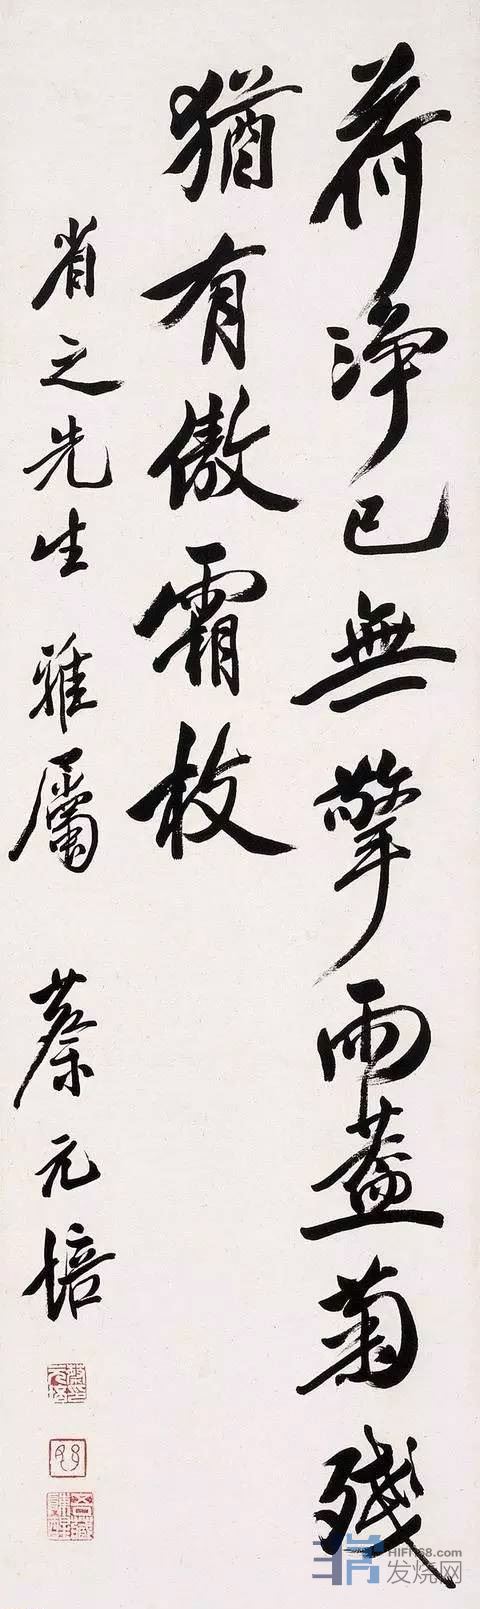 荷淨已無擎雨蓋菊殘
猶有傲霜枝
省之先生雅屬 蔡元培
HIFI168.com
发烧网